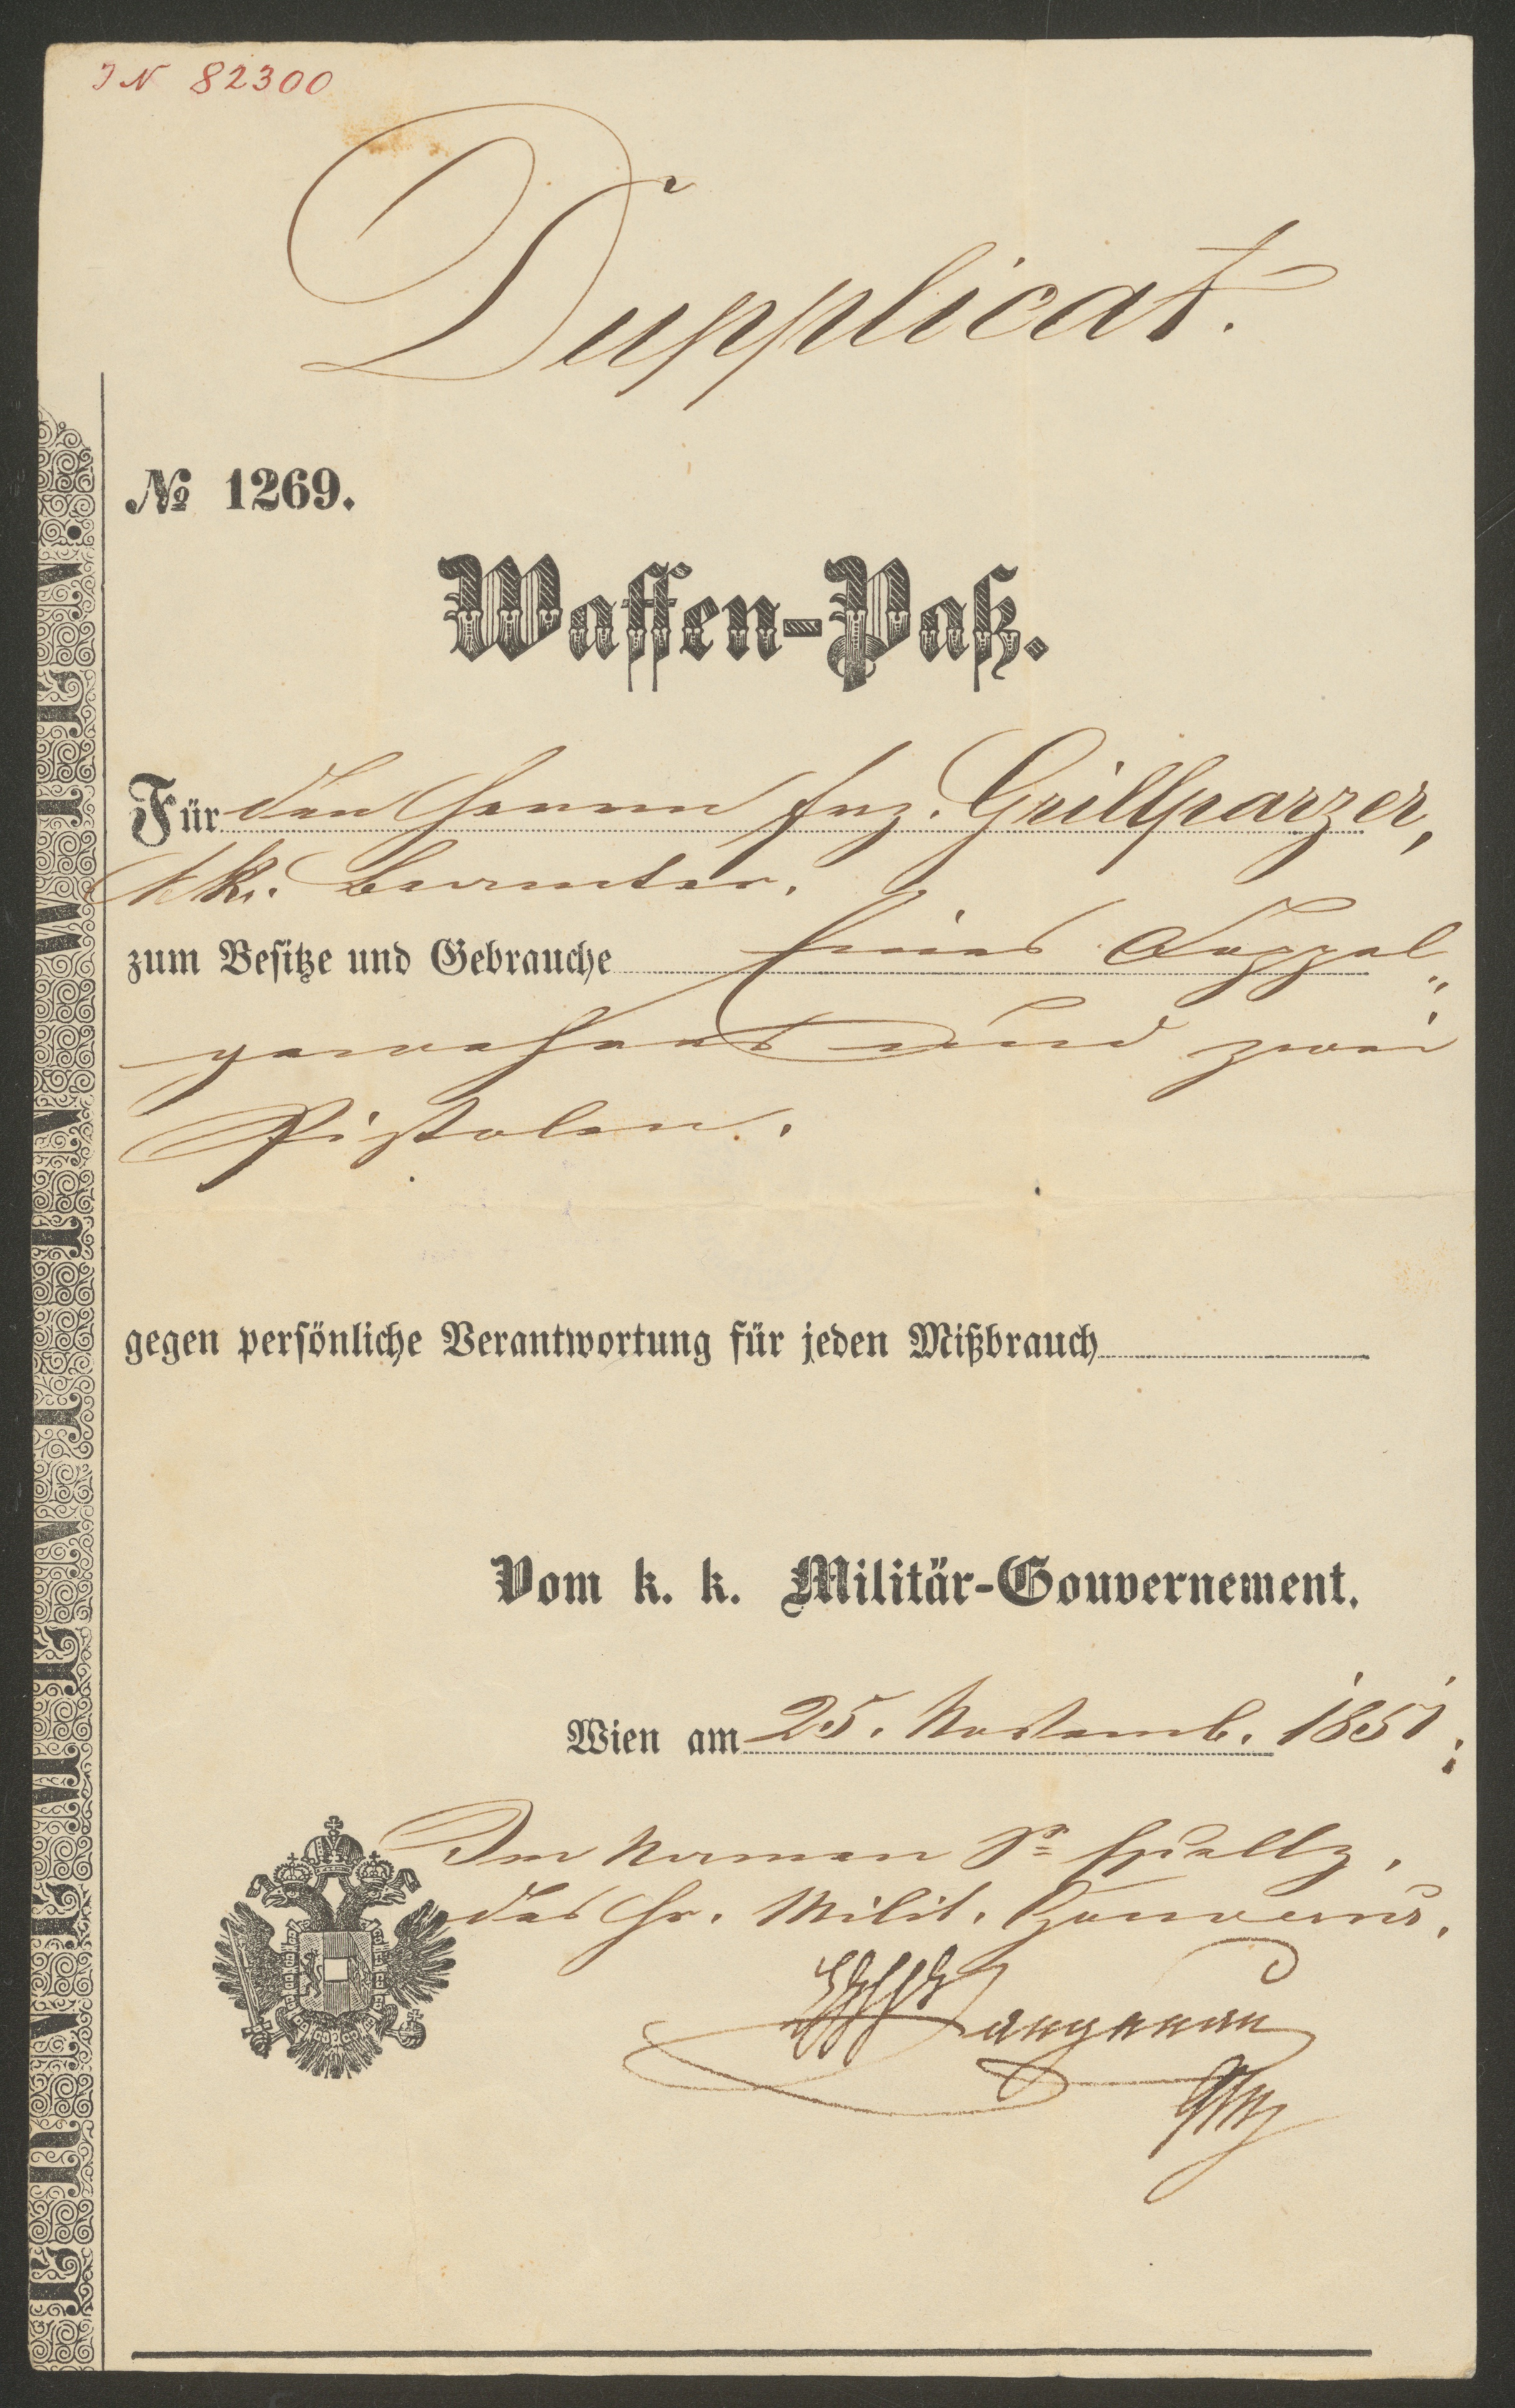 IN 82300
Dupplicat.
№ 1269.
Waffen-Paß.
Für den Herrn Frz. Grillparzer,
kk. Beamter.
zum Besitze und Gebrauche eines Doppel„
gewehres und zwei
Pistolen.
gegen persönliche Verantwortung für jeden Mißbrauch
Vom k. k. Militär-Gouvernement.
Wien am 25. Novemb. 1851.
Im Namen Sr Exzellz.
des Hr. Milit. Gouverns.